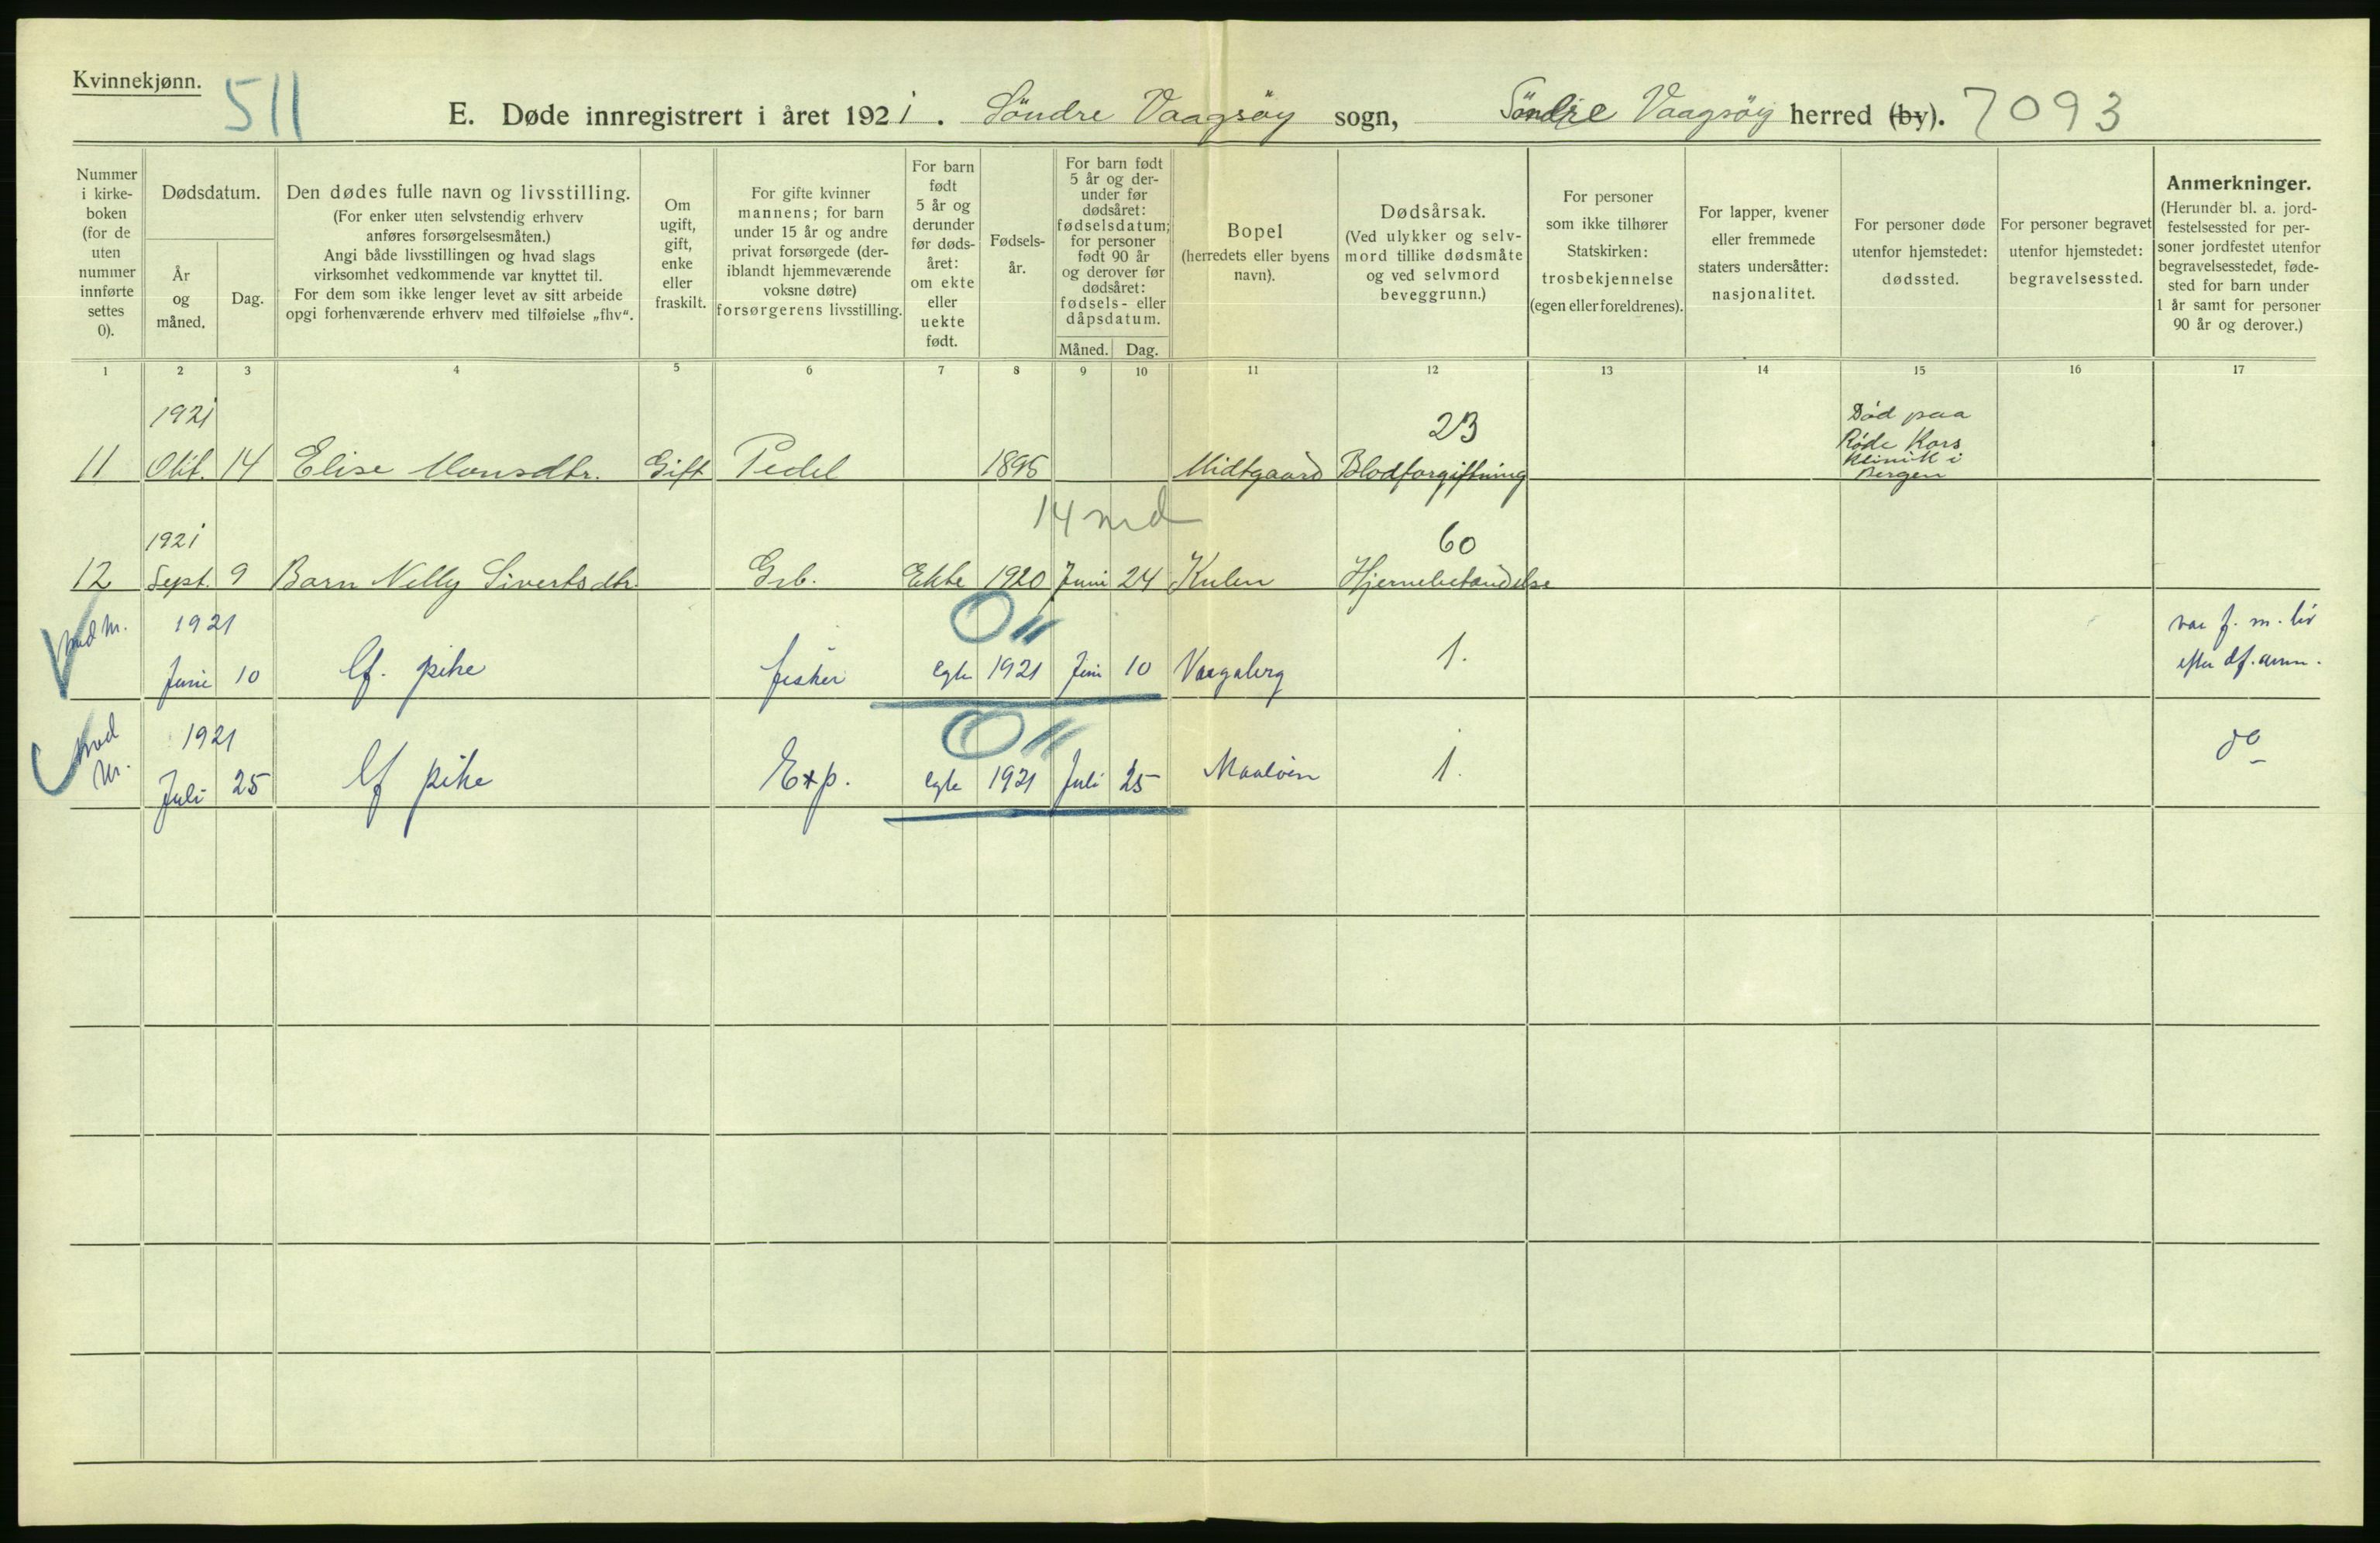 Kvinnekjønn.
511
E. Døde innregistrert i året 1921. Söndre Vaagsöy sogn, Söndre Vaagsöy herred (by). 7093
Nummer i kirke-boken (for de uten nummer innførte settes 0).
Dødsdatum.
År og måned.
Dag.
Den dødes fulle navn og livsstilling.
(For enker uten selvstendig erhverv
anføres forsørgelsesmåten.)
Angi både livsstillingen og hvad slags
virksomhet vedkommende var knyttet til.
For dem som ikke lenger levet av sitt arbeide
opgi forhenværende erhverv med tilføielse „fhv“.
Om ugift, gift, enke eller fraskilt.
For gifte kvinner
mannens; for barn
under 15 år og andre
privat forsørgede (der-
iblandt hjemmeværende
voksne døtre)
forsørgerens livsstilling.
For barn født 5 år og derunder før døds-året: om ekte eller uekte født.
Fødsels-år.
For barn født
5 år og der-
under før
dødsåret:
fødselsdatum;
for personer
født 90 år
og derover før
dødsåret:
fødsels- eller
dåpsdatum.
Måned. Dag.
Bopel
(herredets eller byens
navn).
Dødsårsak.
(Ved ulykker og selv-
mord tillike dødsmåte
og ved selvmord
beveggrunn.)
For personer
som ikke tilhører
Statskirken:
trosbekjennelse
(egen eller foreldrenes).
For lapper, kvener
eller fremmede
staters undersåtter:
nasjonalitet.
For personer døde
utenfor hjemstedet:
dødssted.
For personer begravet
utenfor hjemstedet:
begravelsessted.
Anmerkninger.
(Herunder bl. a. jord-
festelsessted for per-
soner jordfestet utenfor
begravelsesstedet, føde-
sted for barn under
1 år samt for personer
90 år og derover.)
1 2 3 4 5 6 7 8 9 10 11 12 13 14 15 16 17
1921
23
Död paa
Röde Kors
Klinik i
Bergen
11 Okt. 14 Elise Monsdtr. Gift Pedel 1895 Midtgaard Blodforgiftning
14 md
1921
60
12 Sept. 9 Barn Nelly Sivertsdtr. Grb. Ekte 1920 Juni 24 Kulen Hjernebetændelse
1921
0 11
var f. m. liv
Juni 10 lf. pike fisker egte 1921 Juni 10 Vaagsberg 1.
1921
0 11
do
Juli 25 lf pike Exp. egte 1921 Juli 25 Maaløen 1.